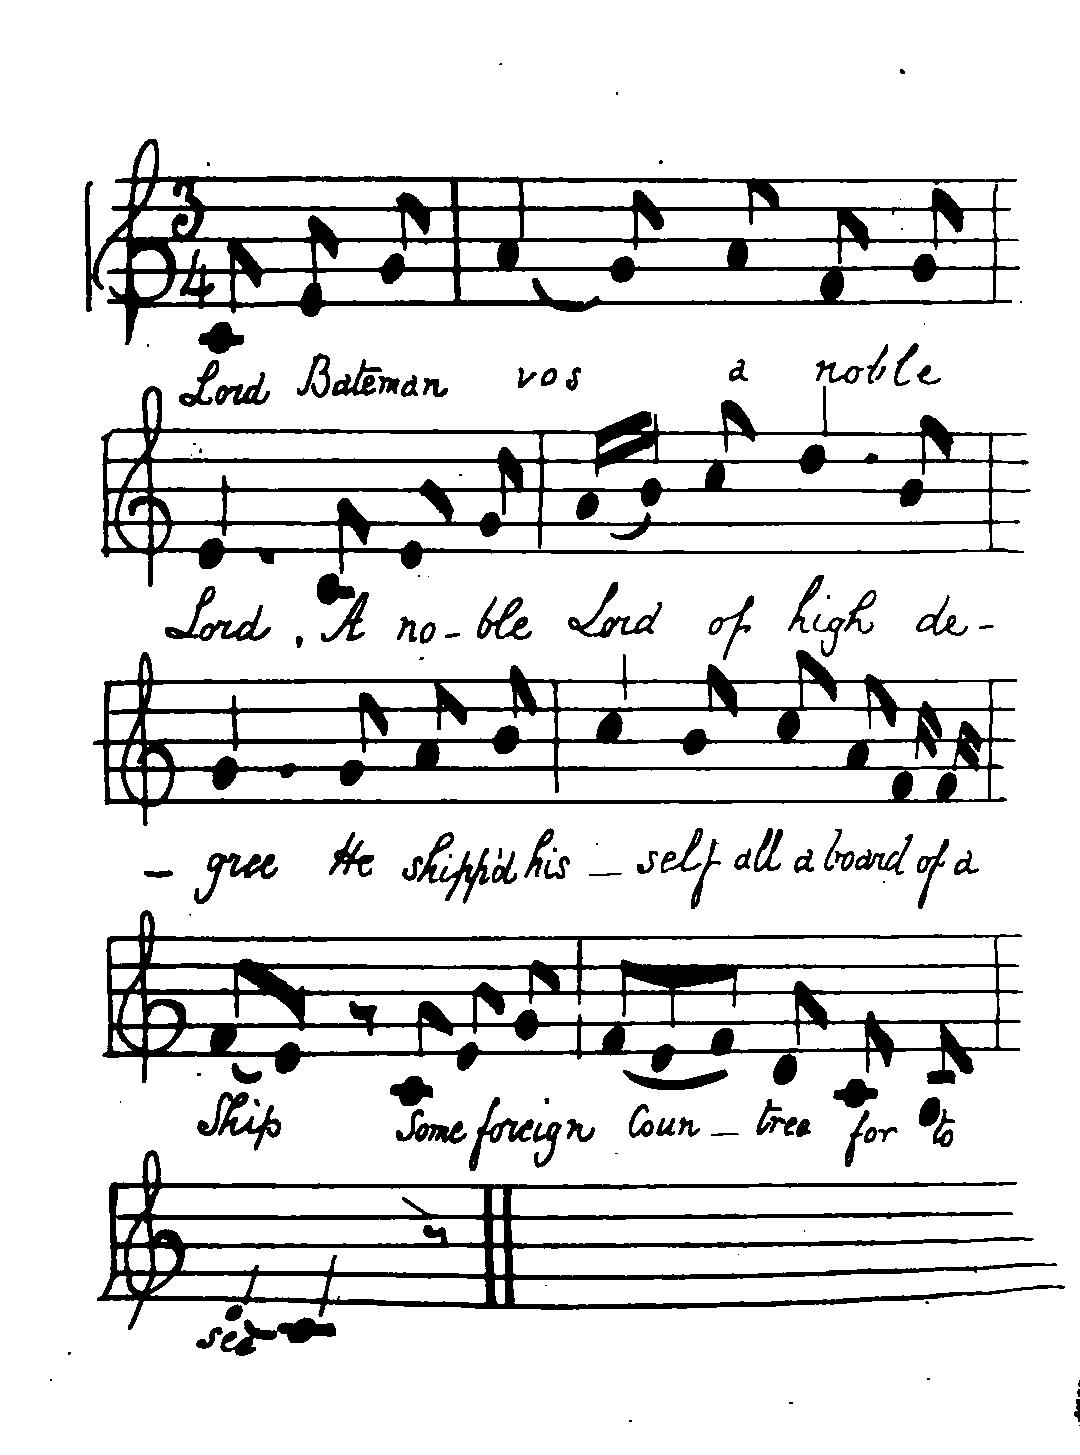 3
4
Lord Bateman vos a noble
Lord, A no- ble Lord of high de-
- gree He shipp'd his - self all a board of a
Ship Some foreign Coun - tree for to
see